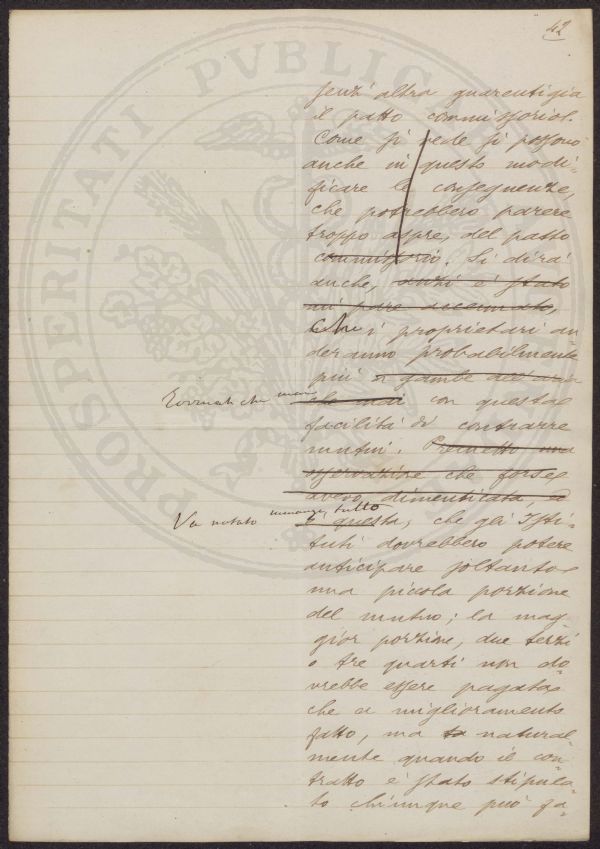 42
senz'altra guarentigia
il patto commissorio.
Come si vede si possono
anche in questo modi=
ficare le conseguenze,
che potrebbero parere
troppo aspre, del patto
commissorio. Si dirà
anche, anzi è stato
mi pare accennato,
Che i proprietari an
deranno probabilmente
più a gambe all'aria
che mai con questa
facilità di contrarre
mutui. Premetto una
osservazione che forse
avevo dimenticata, e
Va notato innanzi tutto
è questa, che gli Isti=
tuti dovrebbero potere
anticipare soltanto
una piccola porzione
del mutuo; la mag
gior porzione, due terzi
o tre quarti non do=
vrebbe essere pagata
che a miglioramento
fatto, ma natural=
mente quando il con=
tratto è stato stipula=
to chiunque può fa=
PROSPERITATI PVBLICAE